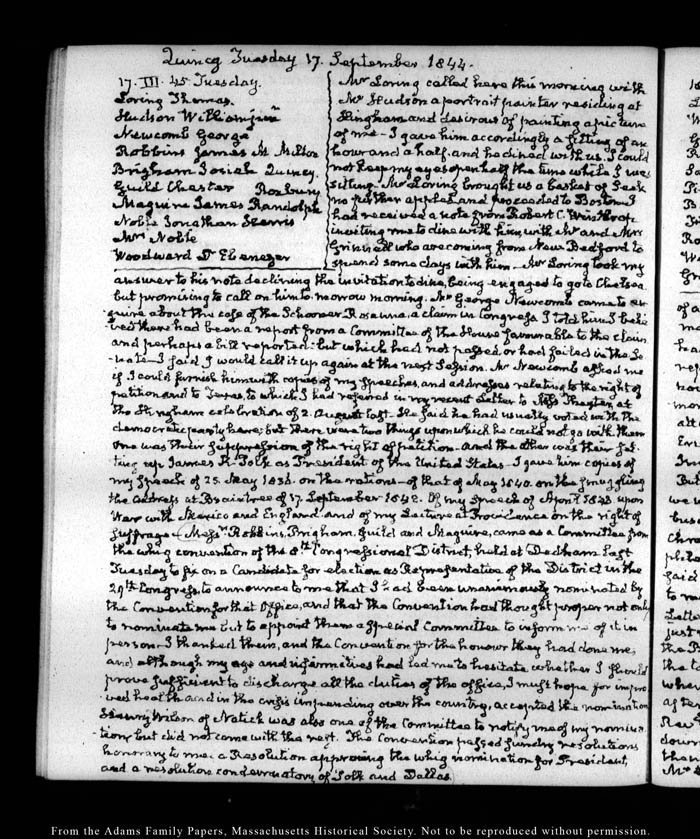 Quincy Tuesday 17. September 1844.
17. III. 45 Tuesday.
Loring Thomas.
Hudson William
Newcomb George
Robbins James M. Milton
Brigham Josiah Quincy.
Guild Chester Roxbury
Maguire James Randolph
Noble Jonathan Harris
Mrs Noble
Woodward Dr Ebenezer
Mr Loring called here this morning with
Mr Hudson a portrait painter residing at
Hingham and desirous of painting a picture
of me— I gave him accordingly a sitting of an
hour and a half, and he dined with us. I could
not keep my eyes open half the time while I was
sitting. Mr Loring brought us a basket of Seek
no further apples, and proceeded to Boston. I
had received a note from Robert C. Winthrop
inviting me to dine with him with Mr and Mrs
Grinnell who are coming from New Bedford to
spend some days with him— Mr Loring took my
answer to his note declining the invitation to dine, being engaged to go to Chelsea
but promising to call on him to-morrow morning. Mr George Newcomb came to en-
quire about the case of the Schooner Rosanna, a claim in Congress. I told him I belie-
ved there had been a report from a Committee of the House favourable to the claim
and perhaps a bill reported: but which had not passed or had failed in the Se-
nate— I said I would call it up again at the next Session. Mr Newcomb asked me
if I could furnish him with copies of my Speeches, and addresses relating to the right of
petition and to Texas, to which I had referred in my recent Letter to Miss Thaxter, at
the Hingham celebration of 2. August last. He said he had usually voted with the
democratic party here; but there were two things upon which he could not go with them
One was their suppression of the right of petition— and the other was their set-
ting up James K. Polk as President of the United States— I gave him copies of
my Speech of 25. May 1836. on the rations— of that of May 1840. on the smuggling
the address at Braintree of 17. September 1842. Of my Speech of April 1842 upon
War with Mexico and England and of my Lecture at Providence on the right of
suffrage— Messrs Robbins, Brigham, Guild and Maguire, came as a Committee from
the whig convention of the 8th Congressional District, held at Dedham last
Tuesday to fix on a Candidate for election as Representative of the District in the
29th Congress, to announce to me that I had been unanimously nominated by
the Convention for that Office, and that the Convention had thought proper not only
to nominate me but to appoint them a special Committee to inform me of it in
person. I thanked them, and the Convention for the honour they had done me,
and although my age and infirmities had led me to hesitate whether I should
prove sufficient to discharge all the duties of the office, I must hope for impro-
ved health and in the crisis impending over the country, accepted the nomination
Henry Wilson of Natick was also one of the Committee to notify me of my nomina-
tion, but did not come with the rest. The Convention passed sundry resolutions
honorary to me; a Resolution approving the whig nomination for President,
and a resolution condemnatory of Polk and Dallas.
From the Adams Family Papers, Massachusetts Historical Society. Not to be reproduced without permission.